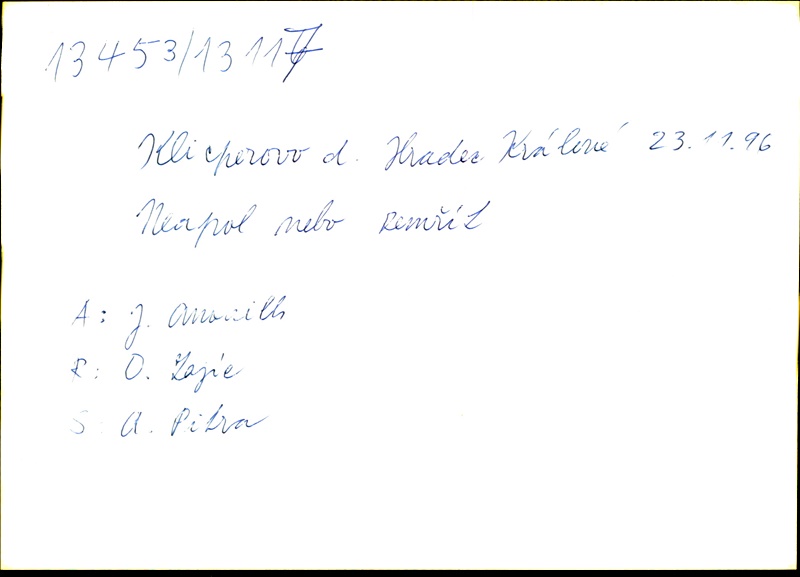 13453/13117
Klicperovo d. Hradec Králové 23.11.96
Neapol nebo zemřít
A: J. Anouilh
R: O. Zajíc
S: A. Pitra